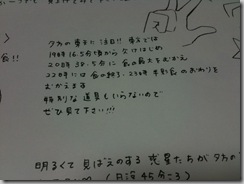 夕方の東天に注目!! 東京では
19時16.5分頃から欠けはじめ
20時30.5分に食の最大をむかえ
22時には食の終了、23時半影食のおわりを
むかえます
特別な道具もいらないので
ぜひ見て下さい!!!
明るくて見ばえのする惑星たちが夕方の
(月没45分ころ)